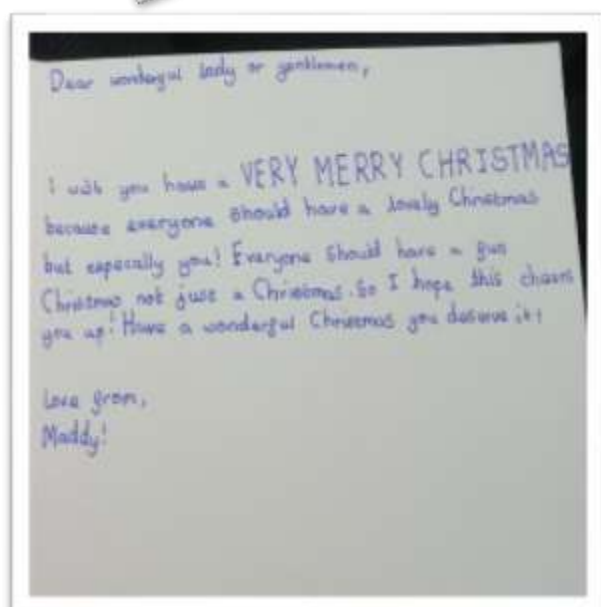 Dear wonderful lady or gentlemen,
I wish you have a VERY MERRY CHRISTMAS
because everyone should have a lovely Christmas
but especially you! Everyone should have a fun
Christmas not just a Christmas. So I hope this cheers
you up! Have a wonderful Christmas you deserve it!
Love from,
Maddy!